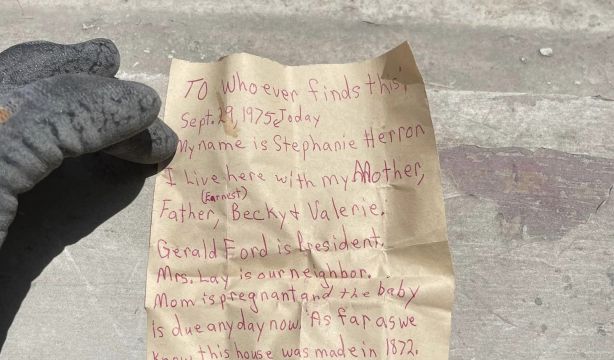 TO whoever finds this,
Sept. 29, 1975 Today
My name is Stephanie Herron
I Live here with my Mother,
(Earnest)
Father, Becky & Valerie.
Gerald Ford is President.
Mrs. Lay is our neighbor.
Mom is pregnant and the baby
is due any day now. As far as we
know this house was made in 1872.